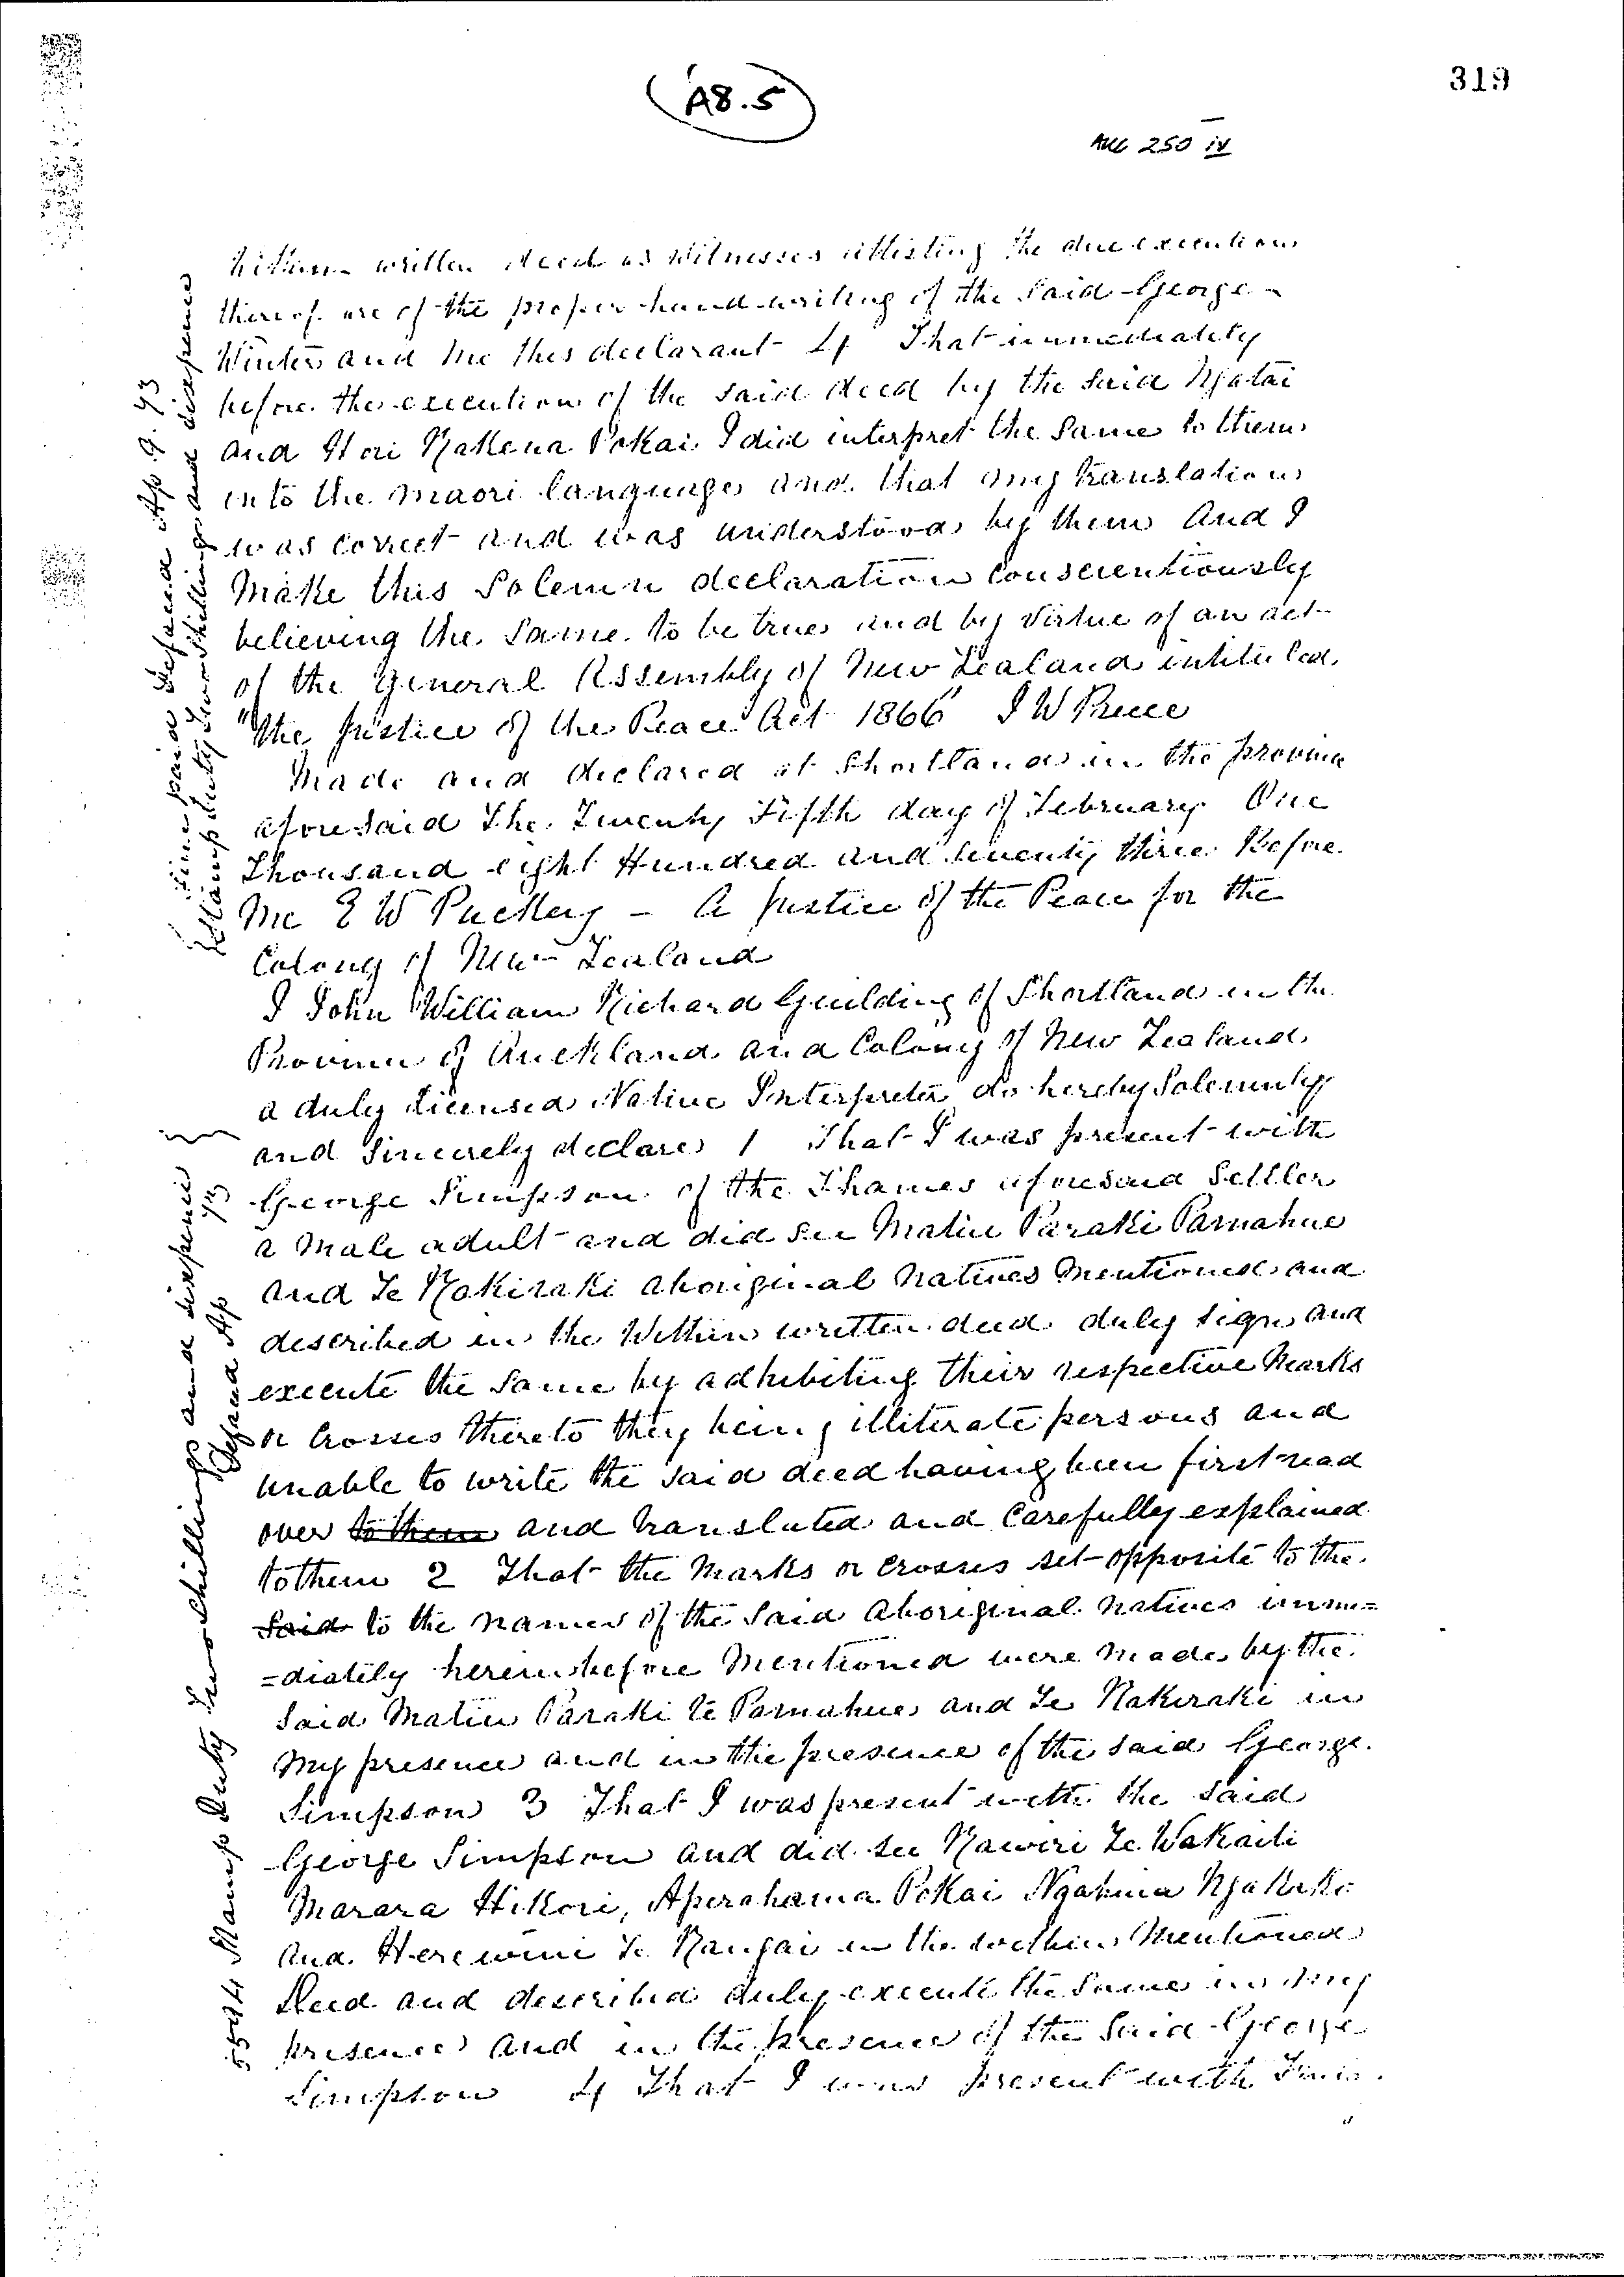 319
A8.5
AUC 250 iv
Within written deed as Witnesses attesting the due execution
thereof are of the proper hand-writing of the Said George
Winter and me this declarant 4 That immediately
before the execution of the said deed by the said Ngatai
and Hori Nakena Pokai I did interpret the same to them
into the maori language and that my translation
was correct and was understood by them And I
Make this Solemn declaration Conscientiously
believing the Same to be true and by virtue of an act
of the General Assembly of New Zealand intituled
"the Justice of the Peace Act 1866" J W Preece
Made and declared at Shortland in the province
aforesaid The Twenty Fifth day of February One
Thousand eight Hundred and Seventy three Before
Me E W Puckey - A Justice of the Peace for the
Colony of New Zealand
I John William Richard Guilding of Shortland in the
Province of Auckland and Colony of New Zealand
a duly licensed Native Interpreter do hereby Solemnly
and Sincerely declare 1 That I was present with
George Simpson of the Thames aforesaid Settler
a Male adult and did see Matiu Paraki Pamahue
and Te Rakiraki aboriginal natives Mentioned and
described in the Within written deed duly sign and
execute the same by adhibiting their respective Marks
or Crosses thereto they being illiterate persons and
unable to write the said deed having been first read
over to them and translated and Carefully explained
to them 2 That the Marks or Crosses set opposite to the
Said to the names of the said Aboriginal natives imme=
=diately hereinbefore Mentioned were Made by the
Said Matiu Paraki te Pamahue and Te Rakiraki in
My presence and in the presence of the said George
Simpson 3 That I was present with the said
George Simpson and did see Rawiri Te Wakaiti
Marara Hikori, Aperahama Pokai Ngahuia
and Herewini Te Rangai in the within Mentioned
Deed and described duly execute the Same in my
presence and in the presence of the Said George
Simpson 4 That I was present with
Fine paid Ap 9. 73
Stamp Duty Two Shillings and sixpence
5594 Stamp Duty Two Shillings and sixpence
Ap 73